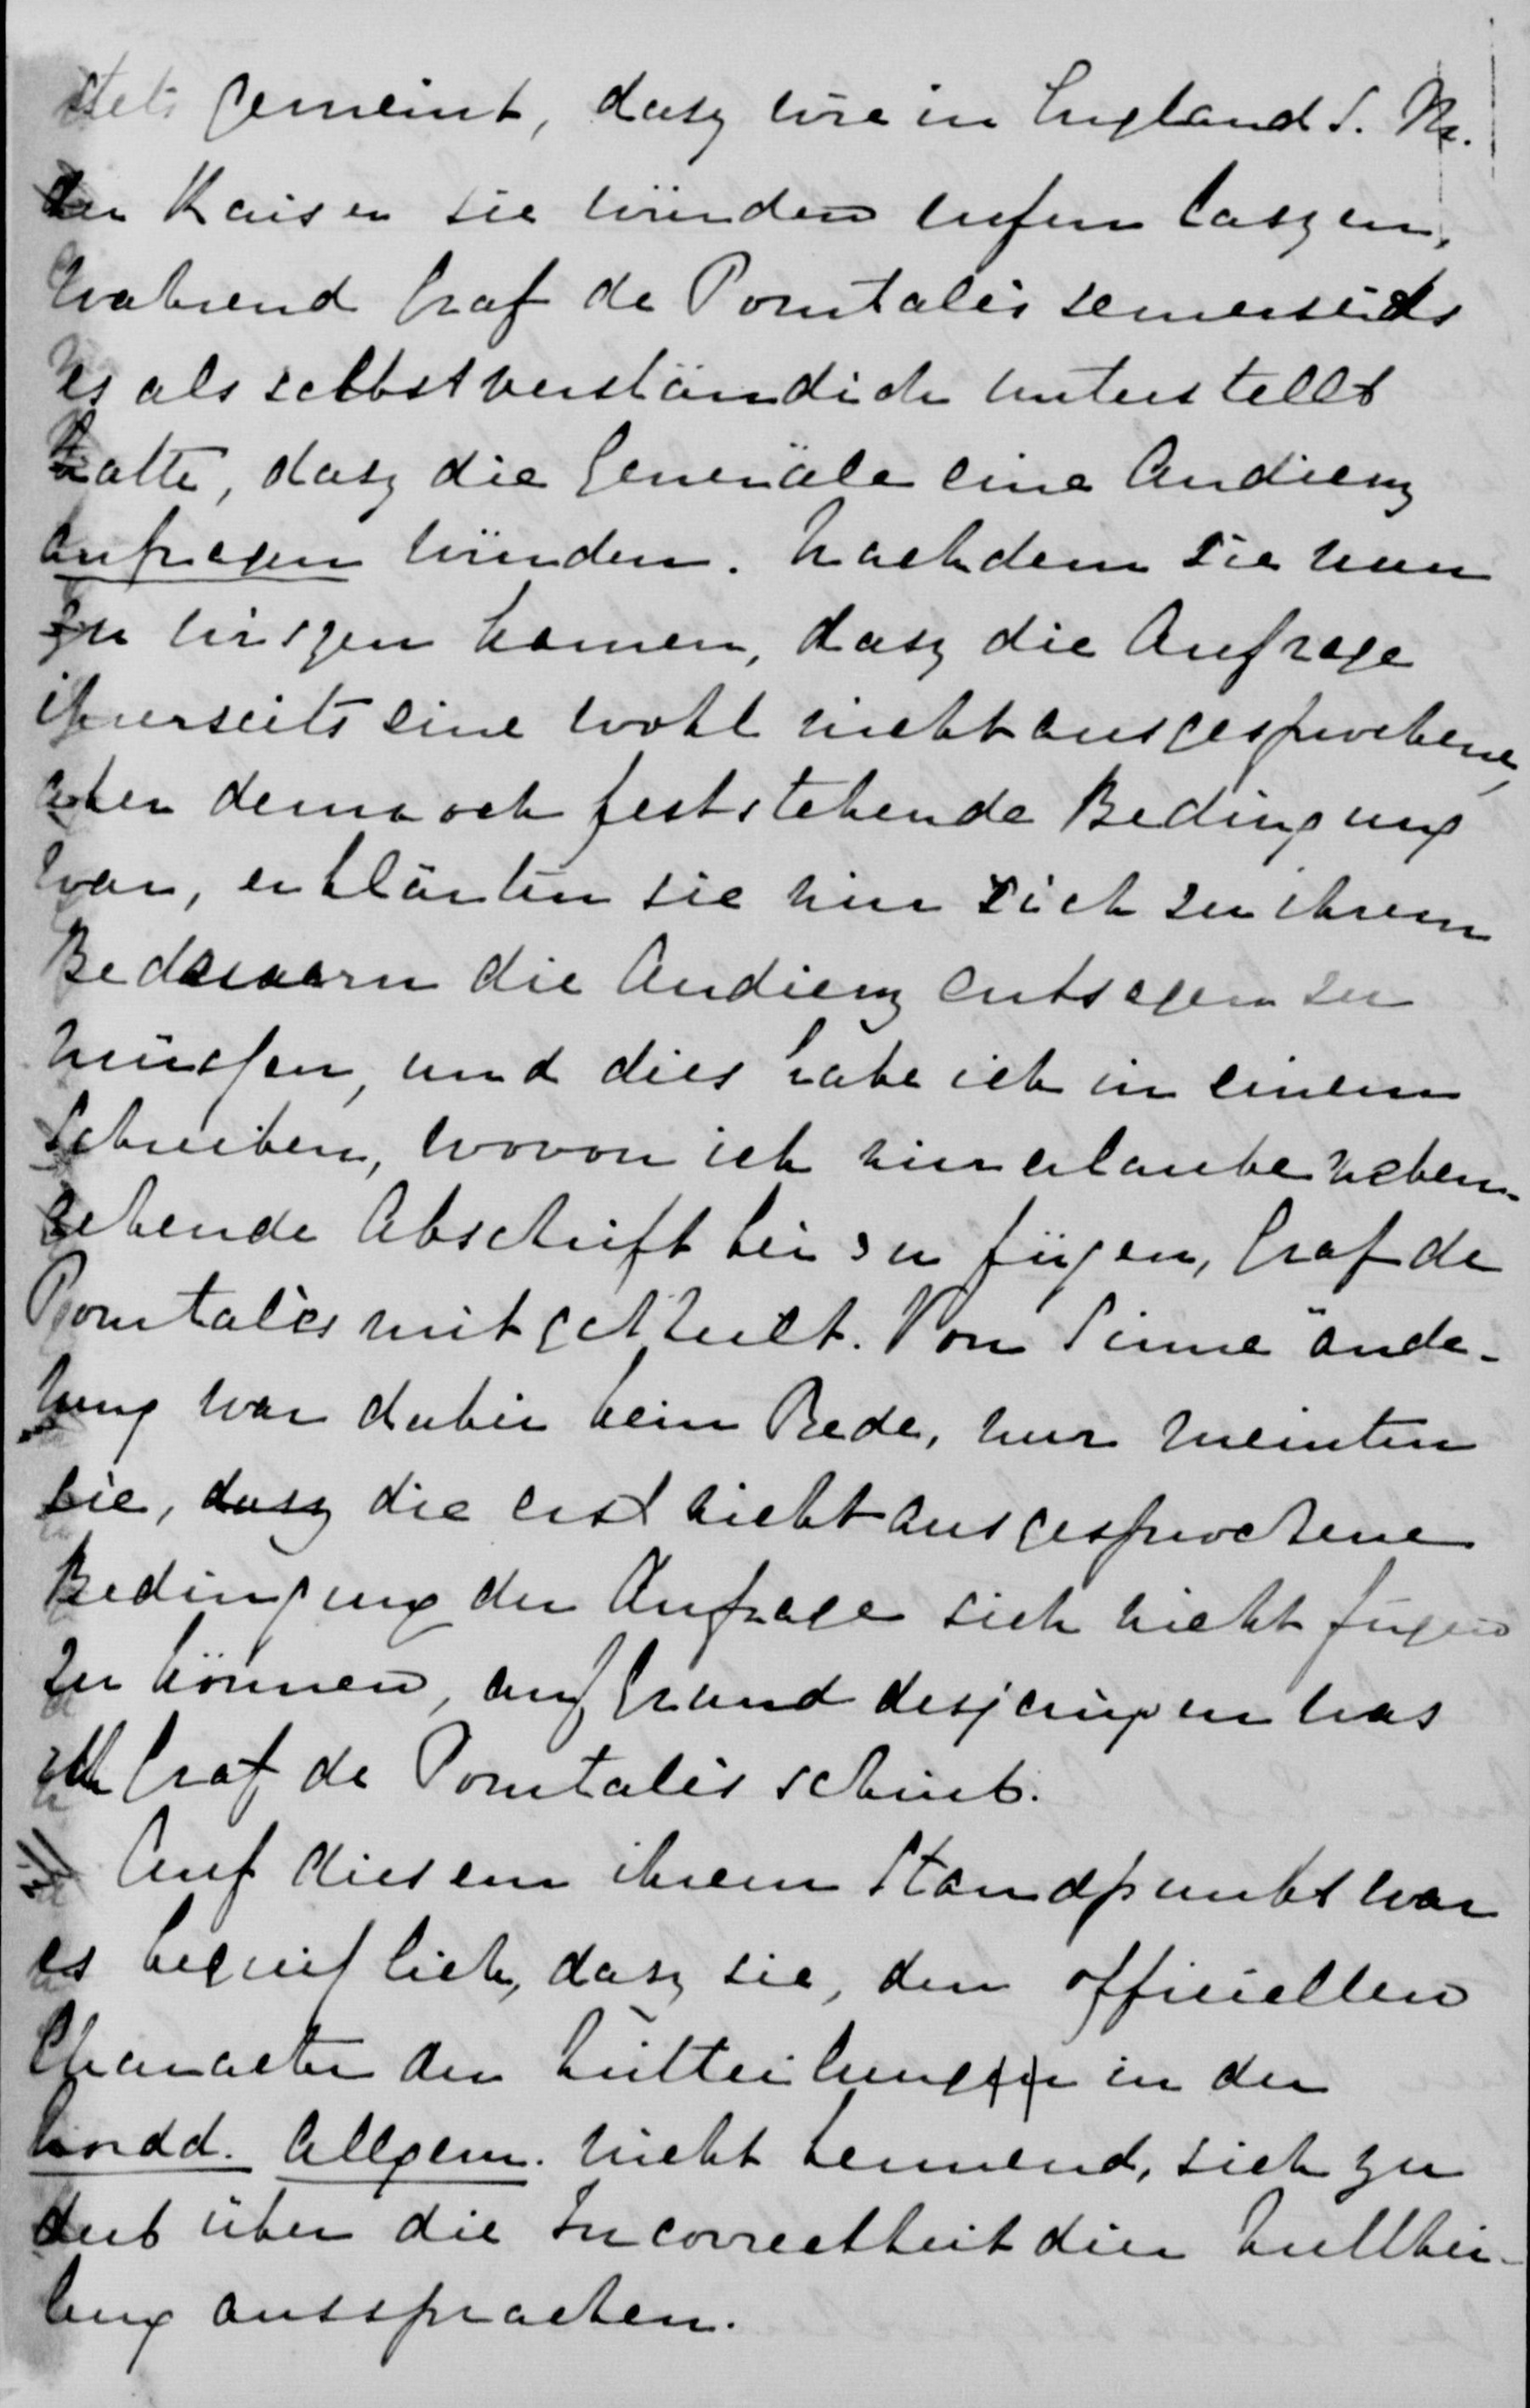 stets gemeint, dasz wie in England S. M.
der Kaiser sie würden rufen laszen,
während Graf de Pourtalès seinerseids
es als selbstverständich unterstellt
hatte, dasz die Generäle eine Audienz
anfragen würden. Nachdem sie nun
zu wiszen kamen, dasz die Anfrage
ihrerseits eine wohl nicht ausgesprochene,
aber dennoch feststehende Bedingung
war, erklärten sie mir sich zu ihrem
Bedauern die Audienz entsagen zu
müssen, und dies habe ich in einem
Schreiben, wovon ich mir erlaube neben-
gehende Abschrift bei zu fügen, Graf de
Pourtalès mitgetheilt. Von Sinneände-
rung war dabei kein Rede, nur meinten
sie, dasz die erst nicht ausgesprochene
Bedingung der Anfrage sich nicht fügen
zu können, auf Grund desjenigen was
Graf de Pourtalès schrieb.
Auf diesem ihrem Standpunkt war
es begreiflich, dasz sie, den officiellen
Character der Mitteilung in der
Nordd. Allgem. nicht kennend, sich zu
derb über die Incorrectheit dier Mitthei-
lung aussprachen.